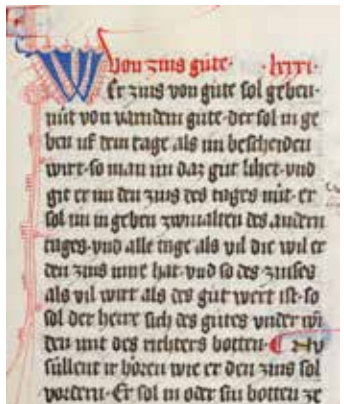 Von zins gůte · lxxxi ·
Wer zins von gůte sol geben ·
mit von varndem gůte · der sol in ge
ben uf dem tage als im bescheiden
wirt · so man im daz gůt lihet · vnd
git er im den zins des tages nüt · er
sol im in geben zwiualten des andern
tages · vnd alle tage als vil die wil er
den zins inne hat · vnd so des zinses
als vil wirt als des gůt wert ist · so
sol der herre sich des gůtes vnder wi
den mit des richters botten · Nv
süllent ir hören wie er den zins sol
vordern · Er sol in oder sin botten ze